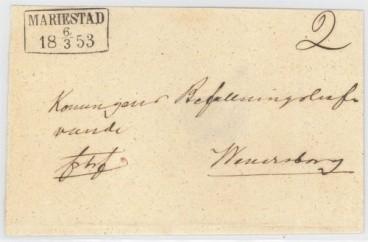 MARIESTAD
2
18 6/3 53
Konungens Befallningshaf-
vande
Wenersborg